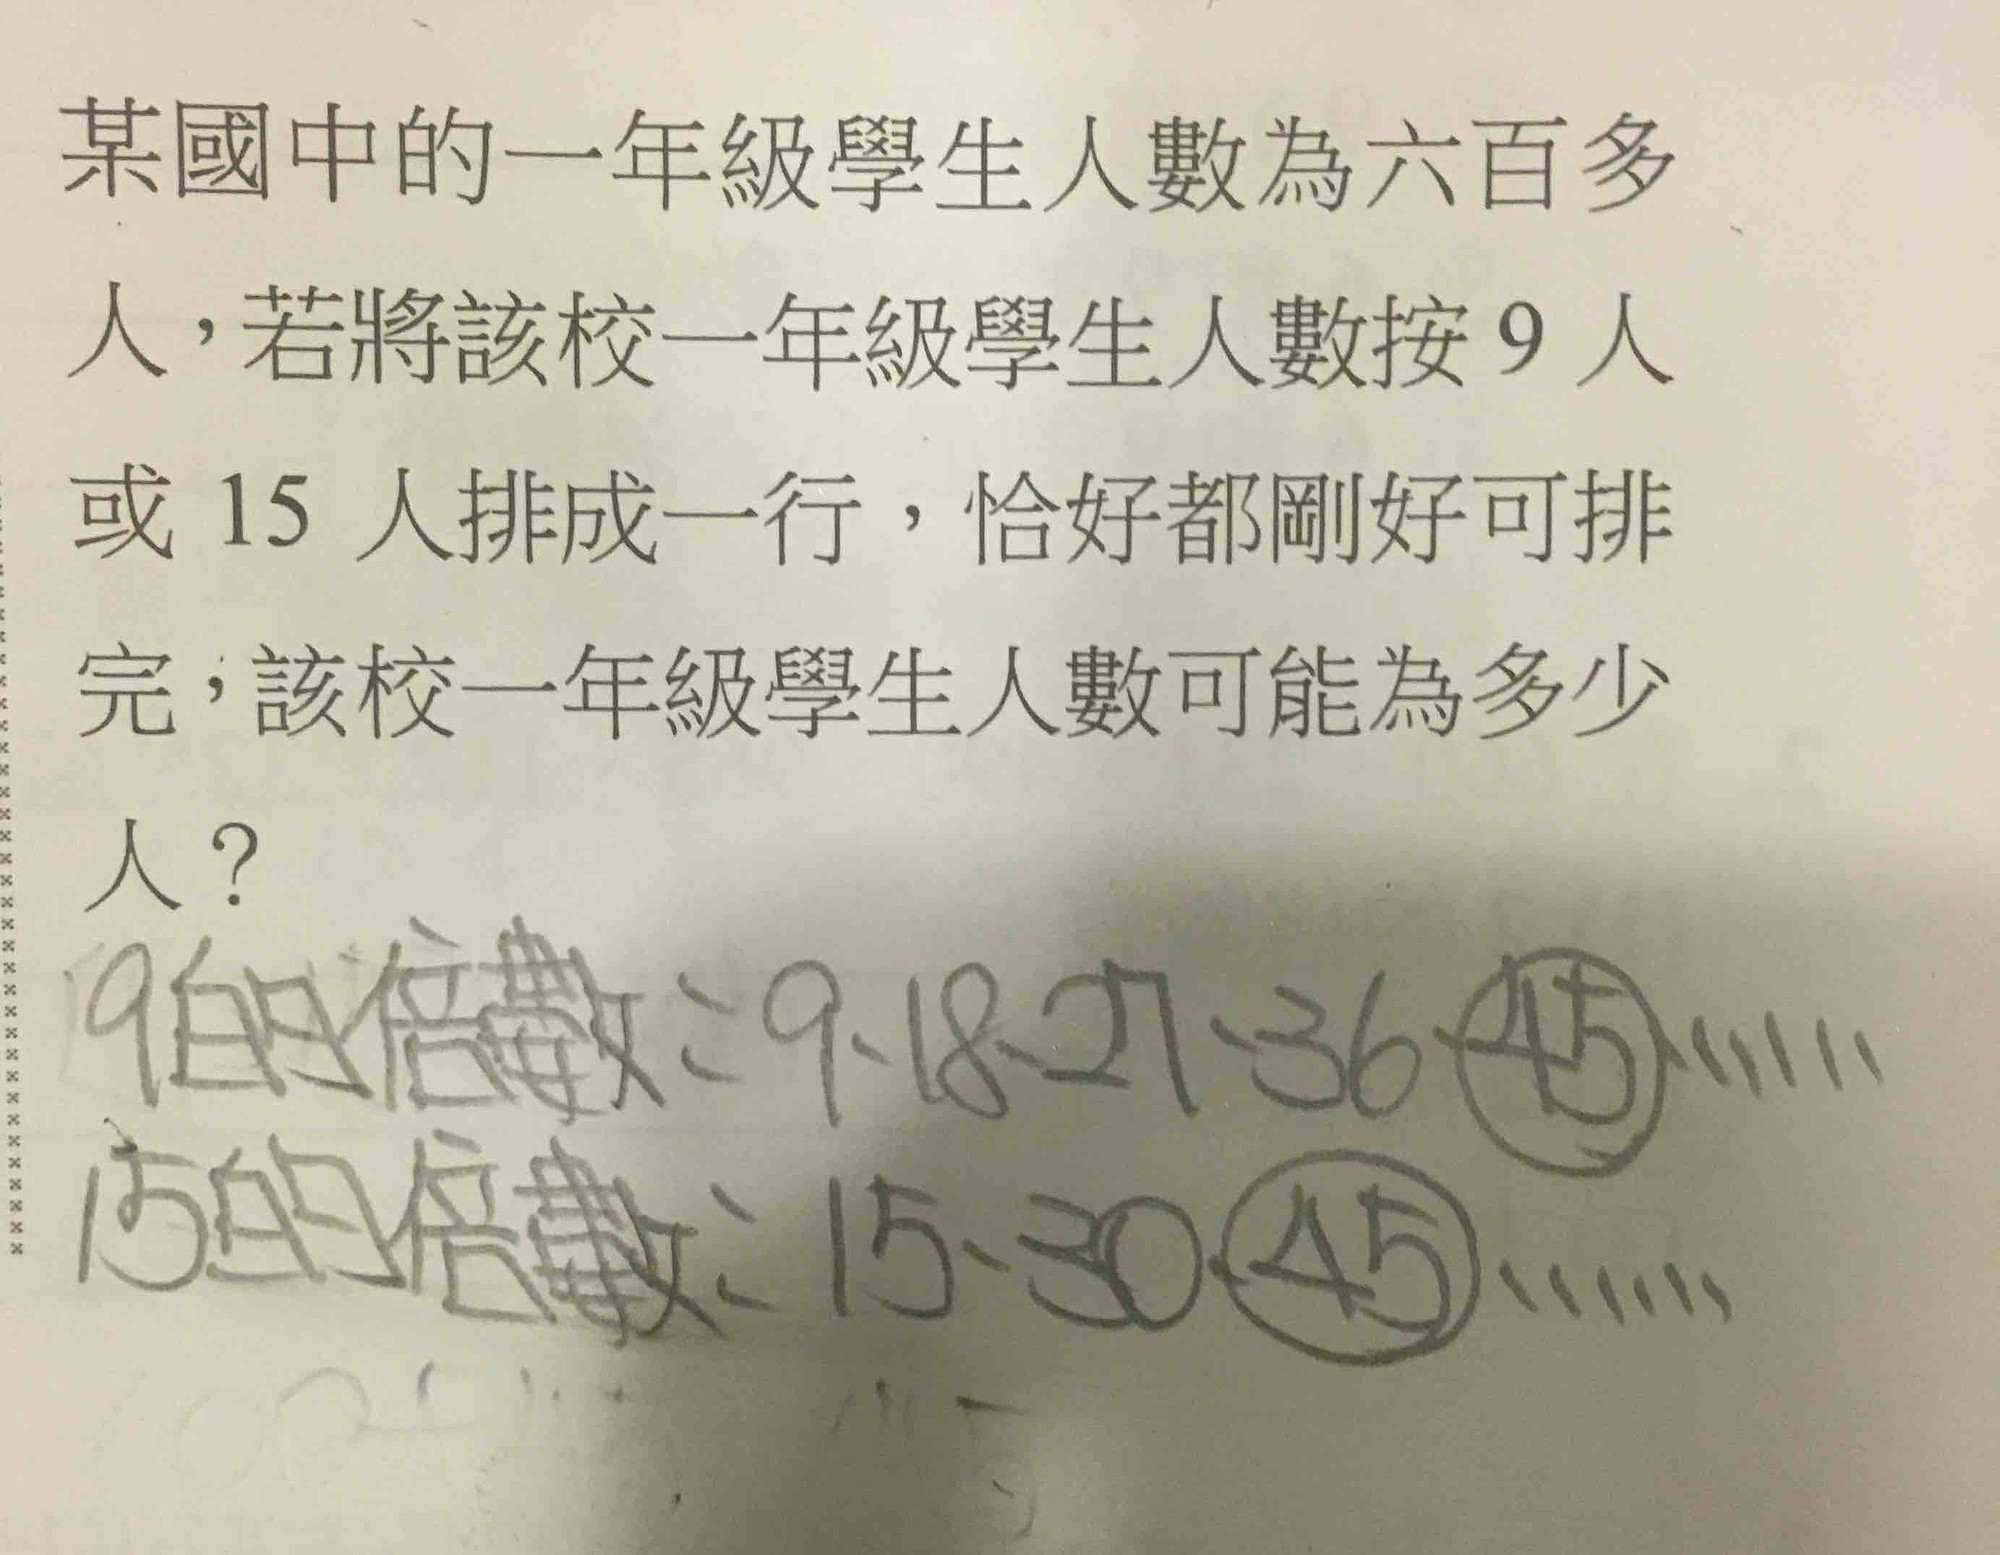 某國中的一年級學生人數為六百多
人，若將該校一年級學生人數按 9 人
或 15 人排成一行，恰好都剛好可排
完，該校一年級學生人數可能為多少
人？
9的倍數：9、18、27、36、45、、、、、、
15的倍數：15、30、45、、、、、、